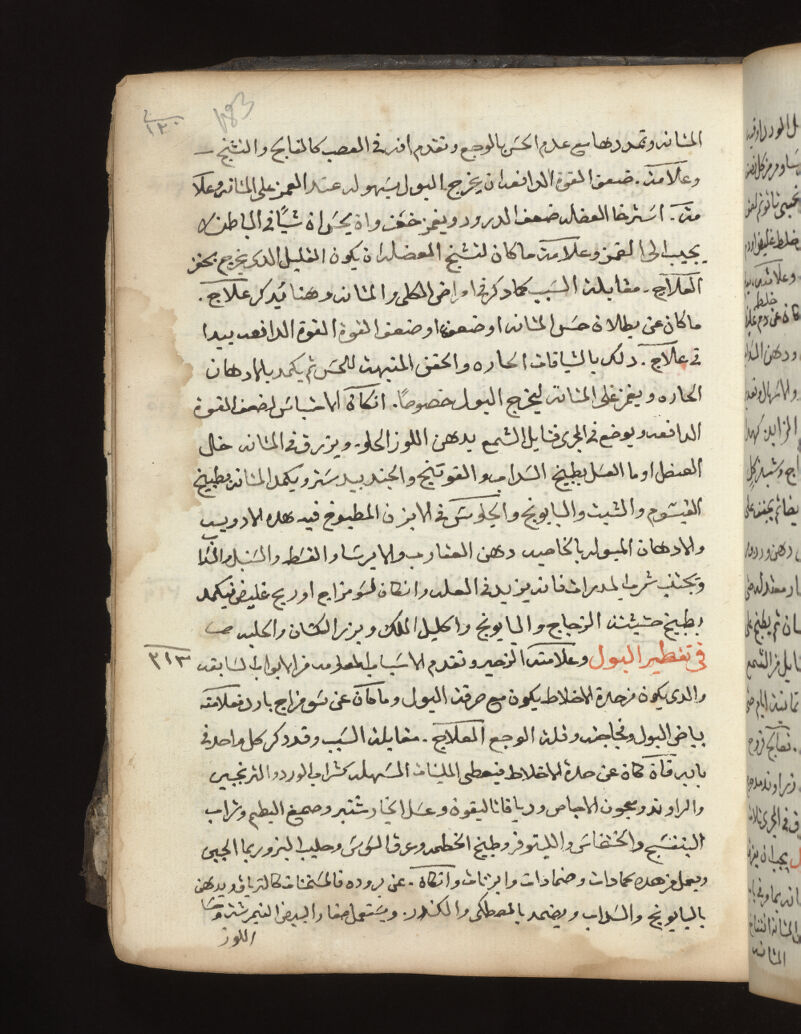 ١٣٠
183
المثانه وتمددها مع عدم الحس بالوجع وتقدم افه في العصب كالفالج والتشنج
وعلامة. ضعف القوة الدافعه ان يخرج البول بسهوله عند الغمز على المثانه وعلا
مة. استرخا العضله ضعف الدرور ويغمز خفف وان يحس ان شيًا في الباطن لا
يجيب الى الغمز وعلامة ما كان لتشنج العضله ان يكون القليل الذي يخرج بحفز
العلاج. مقابلة السبب كما ذكر في امراض الكلى والمثانه وهنا يُذكر علاج.
ما كان عن بطلان حس المثانه او ضعفه او ضعف القوة القوة الدافعه يبدا
في علاج. ذلك بالشيافات الحاره والحقن المنبهة للحس ثم يكمد بالادهان
الحاره ويغمز على المثانه ليخرج البول خصوصًا. ان كان الاحتباس لضعف القوة
الدافعه ويوضع في المجرى فتايل الشمع بدهن اللوز الحلو. ويزرق في المثانه خل
العنصل او ما العسل بطبيخ السداب والفوتنج والجندبيدستر ويكمد المثانه بطبيخ
القيسوم والشبت والبابونج والجلوس في الابزن المطبوخ فيه هذه الادويه
والادهان المبوله بالخاصيه دهن العقارب والايرسا والقسط والسنبل
ويجتنب شرب المدرات فانه يزيد في العله وان كان لسو مزاج او ريح غليظ فيكمد
بطبيخ حشيشة الزجاج والبابونج واكليل الملك وبزر الكتان والحلبه
في تقطير البول وعلامته الزحير وتقدم الاسباب المعلومه من الابواب السابقه
٢١٣
والذي يكون من حدة الاخلاط يكون مع حرقة البول وما كان عن سو مزاج بارد فعلامته
بياض البول وفجاجته وقلة الوجع العلاج. مقابلة السبب وقد ذكر كل واحد في
بابه فان كان عن حدة الاخلاط فيعطى الملينات المسهله كشراب الورد والترنجبين
والراوند ومعجون الاجاص ودياقانا ليقوه وعسل الخيارشنبر وصمغ البطم وشراب
البنفسج والخشخاش والنيلوفر وطبيخ الخطميه وعرق السوس وحليب البزور بما الجبن
ويعمل من هذه كمادات وضمادات وابزنات وان كان. عن بروده فالمسخنات كالترياق ويدهن
بالبابونج والسداب ويضمد بالمصطكى والكندر. ويستعمل صفار البيض النيمرشت
اللوز